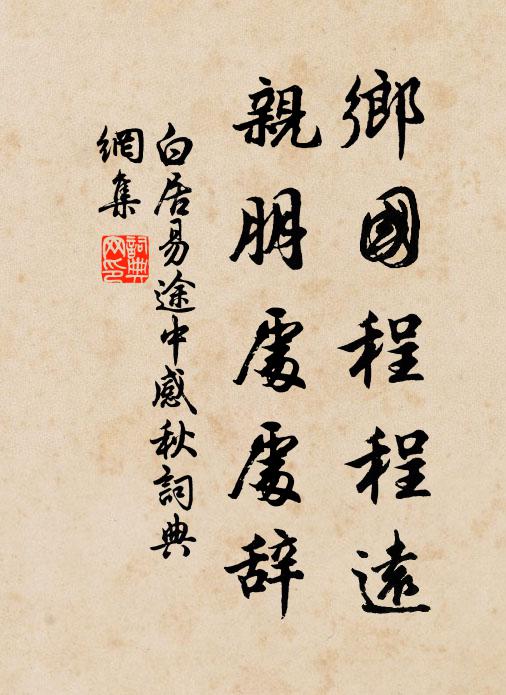 鄉國程程遠
親朋處處辞
白居易途中感秋詞典
網集
詞典网印